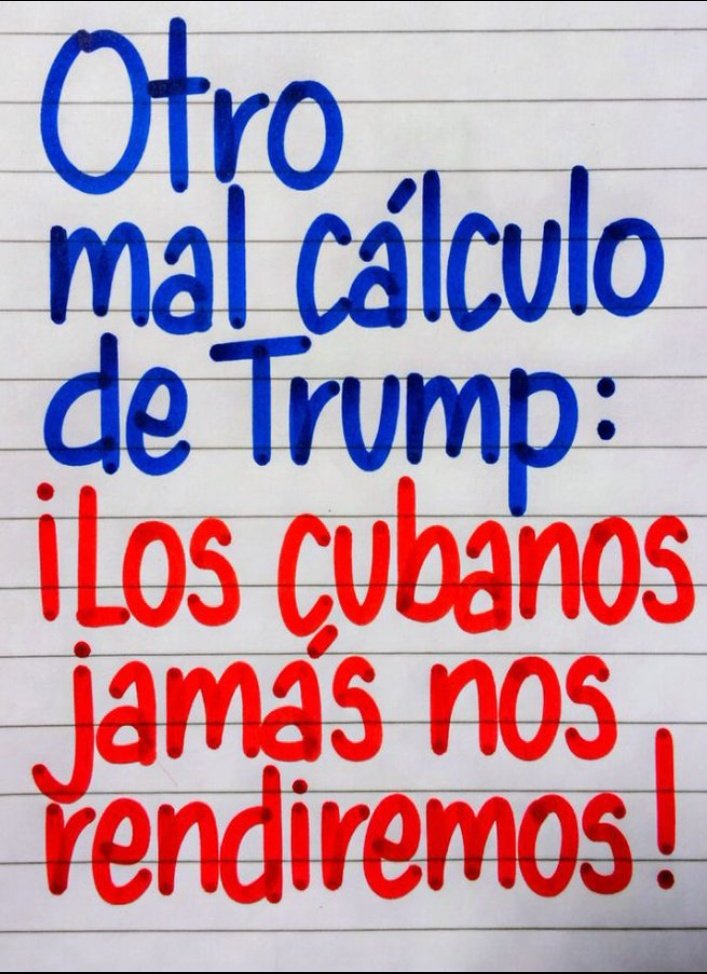 Otro
mal cálculo
de Trump:
¡Los cubanos
jamás nos
rendiremos!